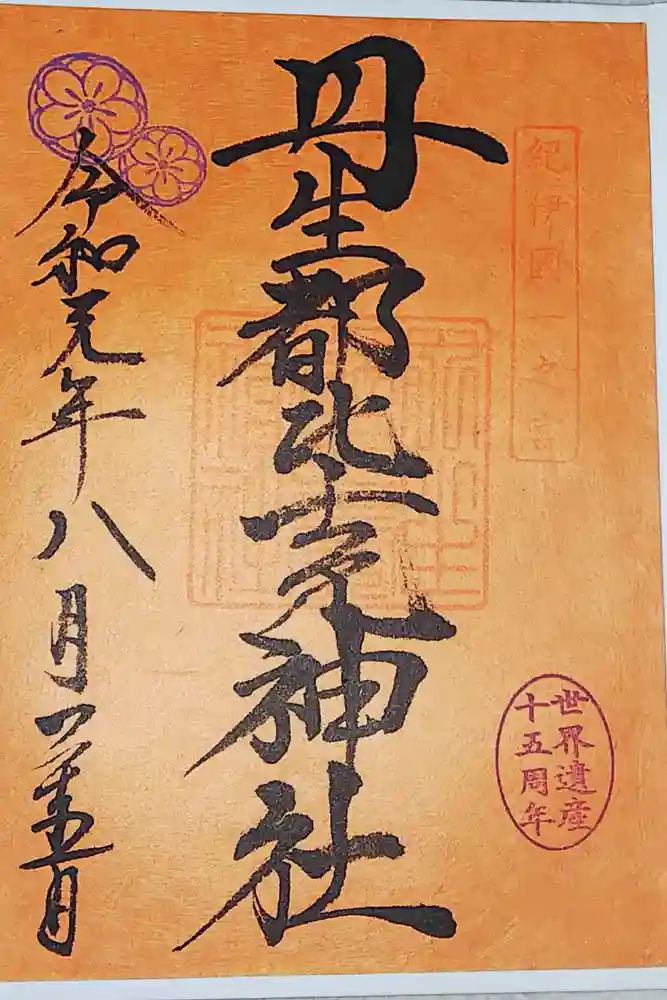 紀伊國一之宮
世界遺産
十五周年
丹生都比売神社
令和元年八月五日